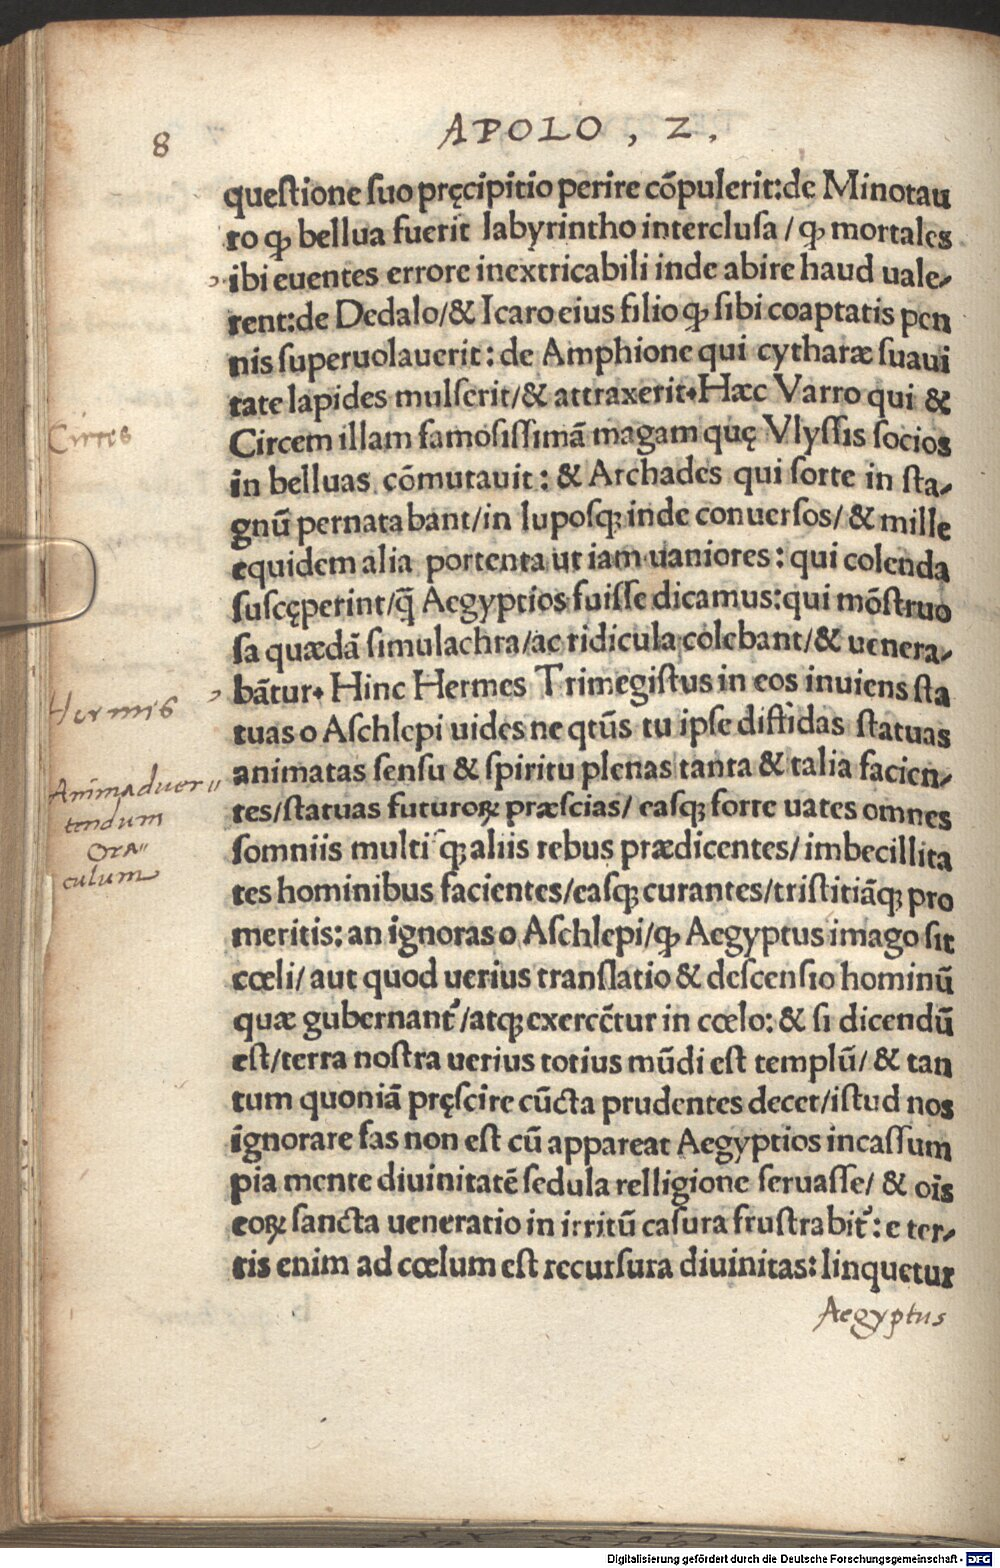 8
APOLO , Z .
questione suo pręcipitio perire cōpulerit:de Minotau
ro ꝙ bellua fuerit labyrintho interclusa / ꝙ mortales
ibi euentes errore inextricabili inde abire haud uale-
rent:de Dedalo/& Icaro eius filio ꝙ sibi coaptatis pen
nis superuolauerit: de Amphione qui cytharæ suaui
tate lapides mulserit/& attraxerit. Hæc Varro qui &
Circes
Circem illam famosissimā magam quę Vlyssis socios
in belluas cōmutauit: & Archades qui sorte in sta-
gnū pernatabant/in luposqꝫ inde conuersos/& mille
equidem alia portenta ut iam uaniores: qui colenda
suscęperint/q̄ Aegyptios fuisse dicamus:qui mōstruo
sa quædā simulachra/ac ridicula colebant/& uenera-
Hermis
bātur. Hinc Hermes Trimegistus in eos inuiens sta
tuas o Aschlepi uides ne qtūs tu ipse diffidas statuas
Animaduer-
tendum
Ora-
culum
animatas sensu & spiritu plenas tanta & talia facien-
tes/statuas futuroꝝ præscias/ easqꝫ forte uates omnes
somniis multisqꝫ aliis rebus prædicentes/imbecillita
tes hominibus facientes/easqꝫ curantes/tristitiāqꝫ pro
meritis: an ignoras o Aschlepi/ꝙ Aegyptus imago sit
cœli/ aut quod uerius translatio & descensio hominū
quæ gubernant᷑/atqꝫ exercētur in cœlo: & si dicendū
est/terra nostra uerius totius mūdi est templū/ & tan
tum quoniā pręscire cūcta prudentes decet/istud nos
ignorare fas non est cū appareat Aegyptios incassum
pia mente diuinitatē sedula relligione seruasse/ & oīs
eoꝝ sancta ueneratio in irritū casura frustrabit᷑: e ter-
ris enim ad cœlum est recursura diuinitas: linquetur
Aegyptus
Digitalisierung gefördert durch die Deutsche Forschungsgemeinschaft - DFG